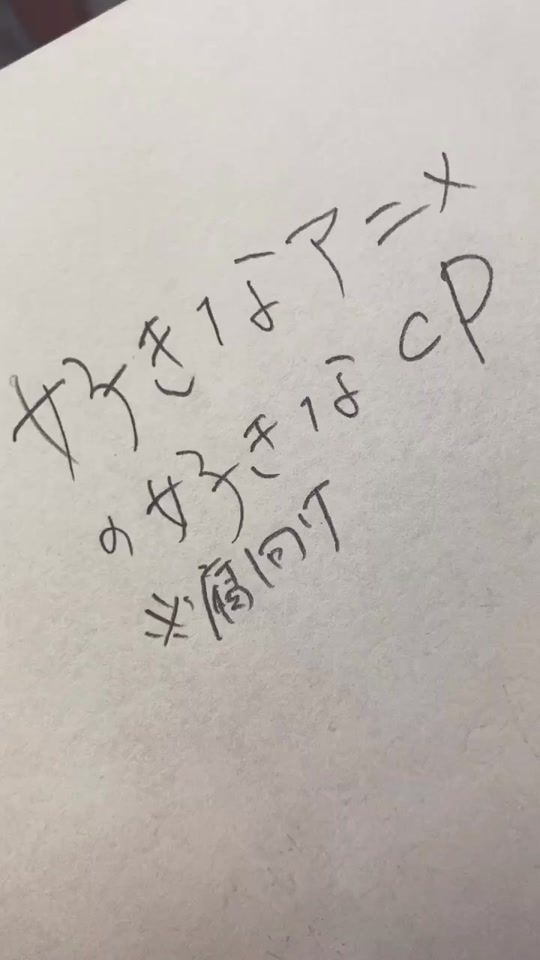 好きなアニメ
の好きなCP
※腐向け